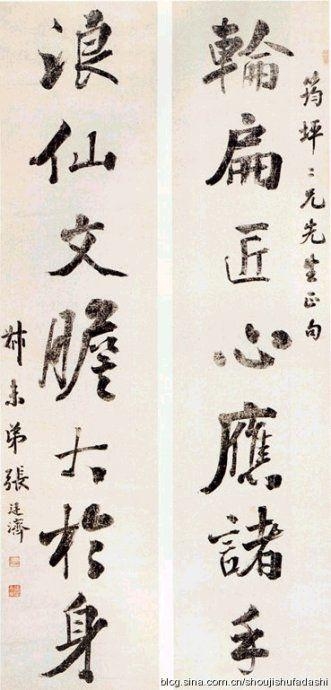 筠坪二兄先生正句
輪扁匠心應諸手
浪仙文膽大於身
叔未弟張廷濟
blog.sina.com.cn/shoujishufadashi